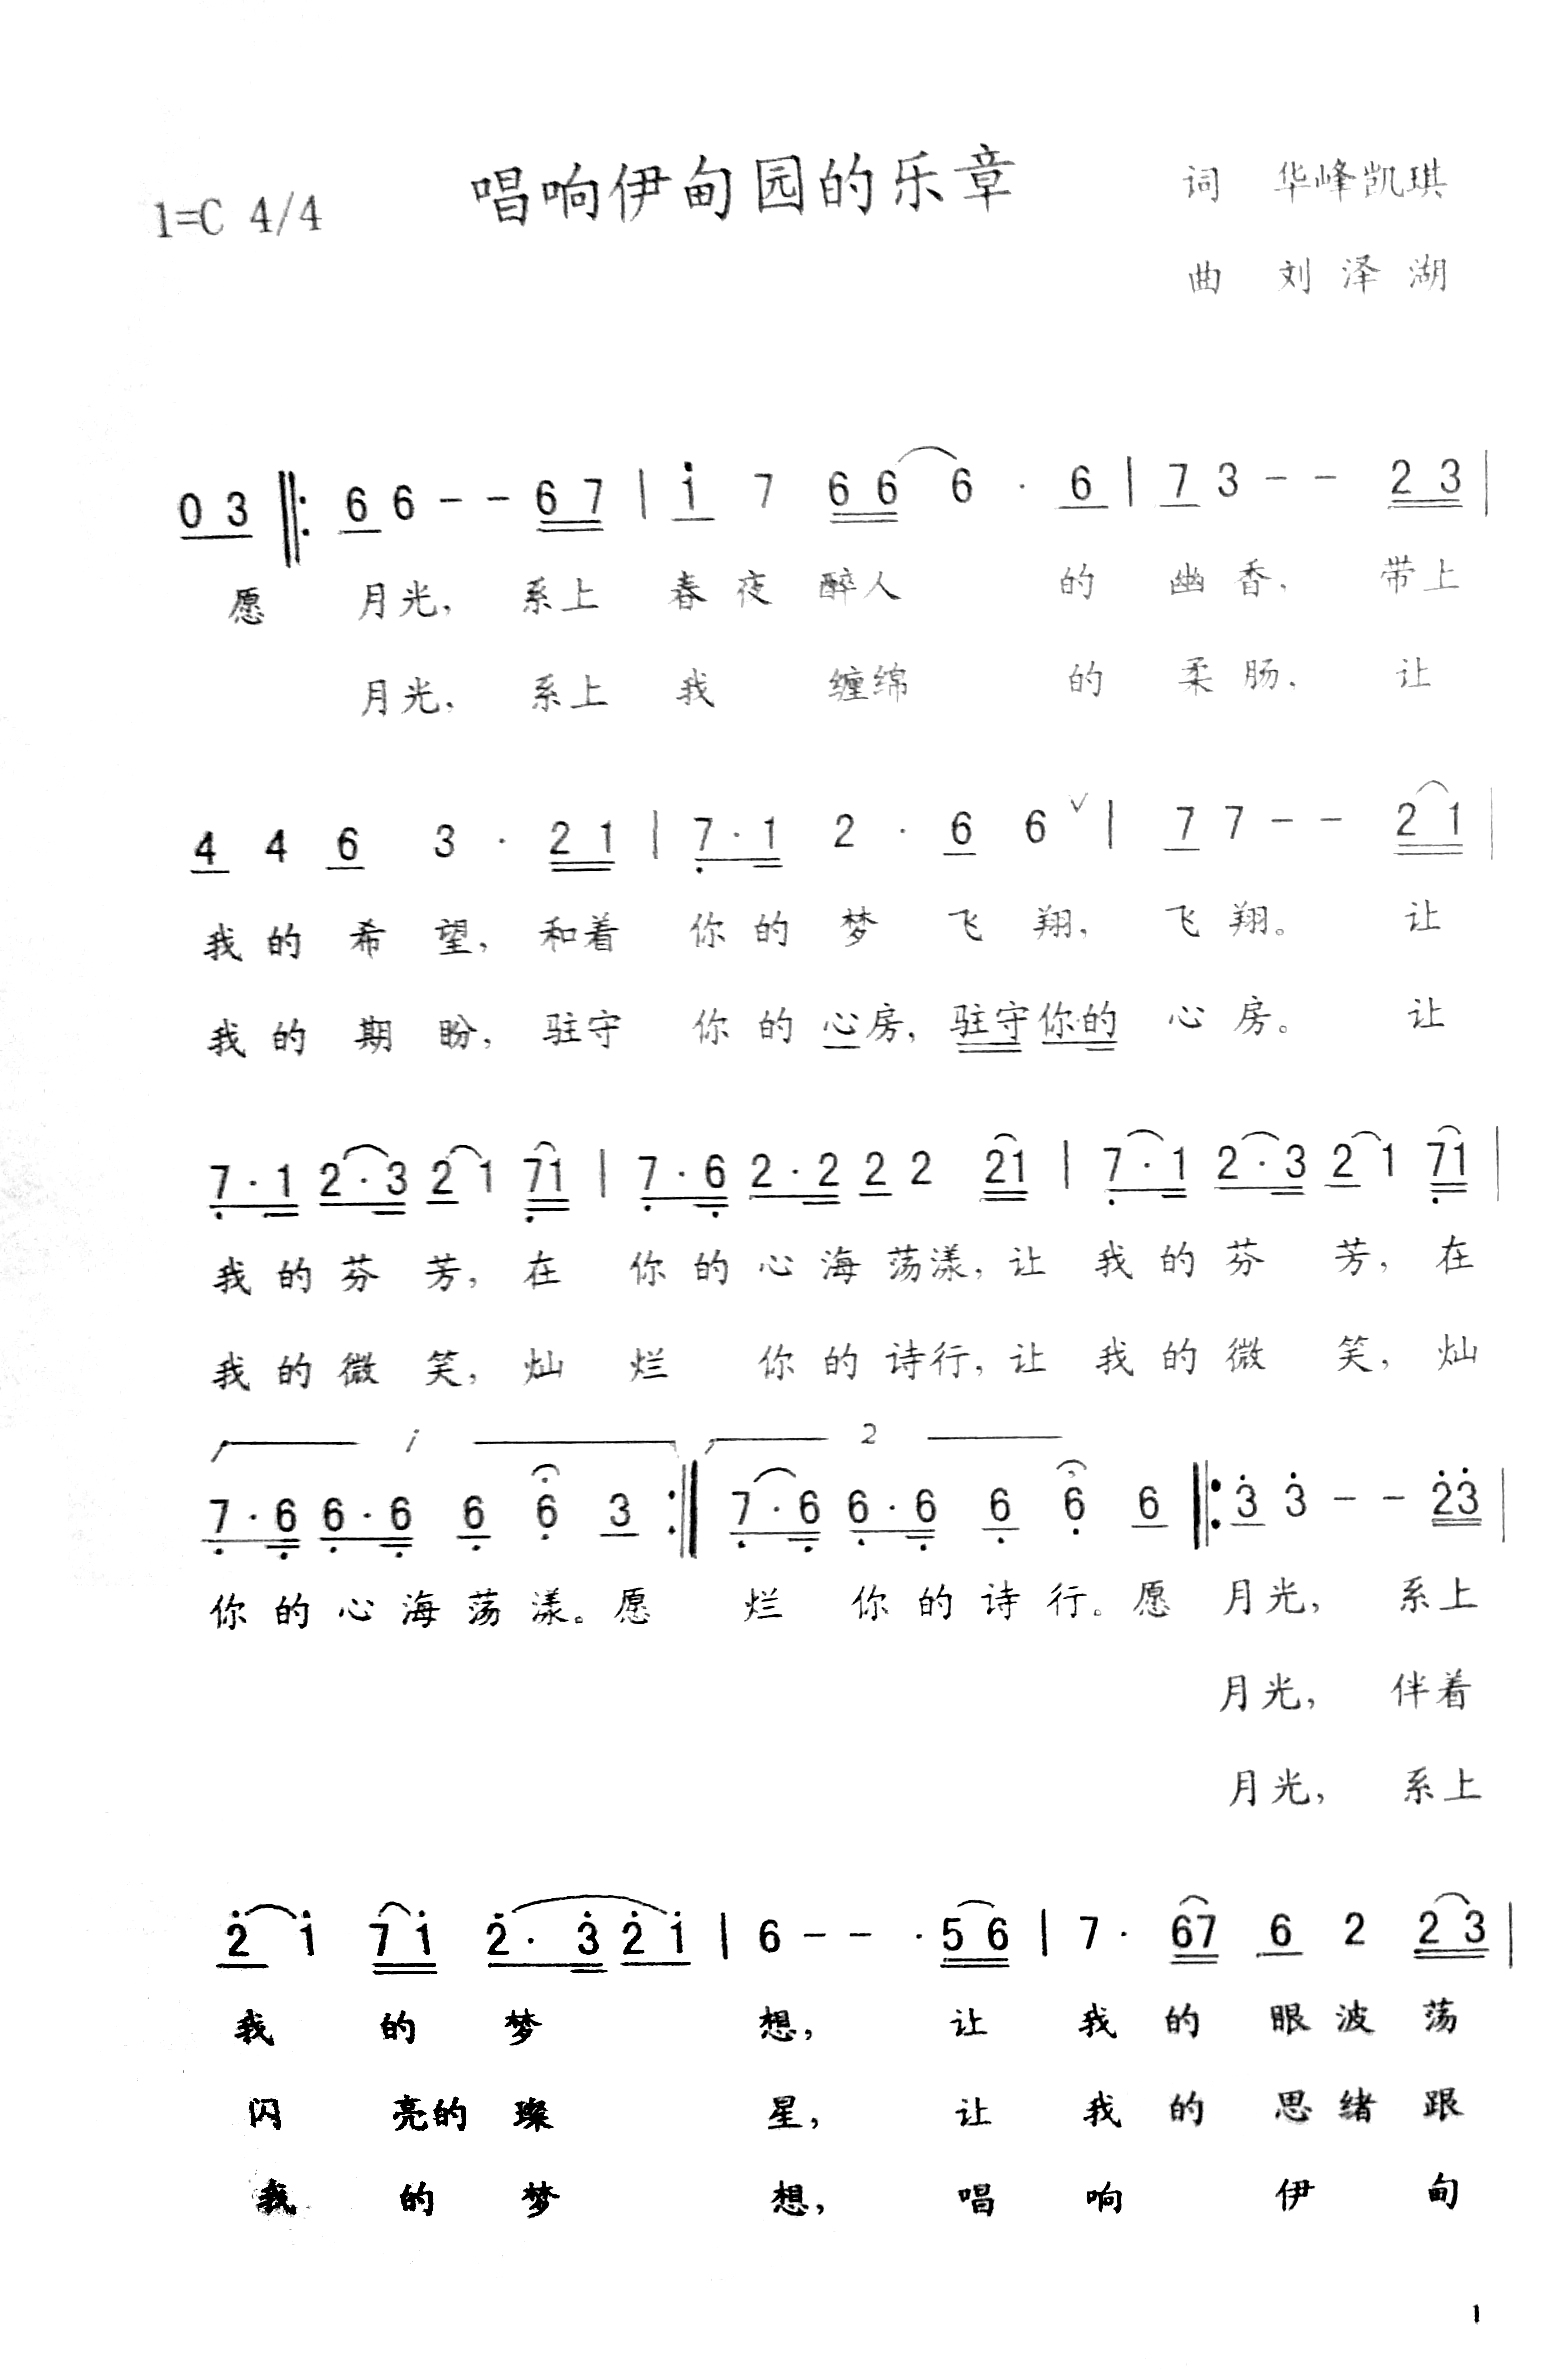 唱响伊甸园的乐章
1=C 4/4
词 华峰凯琪
曲 刘泽湖
0 3 ‖: 6 6 - - 6 7 | i 7 6 6 6 · 6 | 7 3 - - 2 3 |
愿 月光, 系上 春夜醉人 的 幽香, 带上
月光, 系上 我 缠绵 的 柔肠, 让
4 4 6 3 · 2 1 | 7 · 1 2 · 6 6 ∨ | 7 7 - - 2 1 |
我的希望, 和着 你的梦 飞 翔, 飞翔。 让
我的期盼, 驻守 你的心房, 驻守你的 心房。 让
7 · 1 2 · 3 2 1 7 1 | 7 · 6 2 · 2 2 2 2 1 | 7 · 1 2 · 3 2 1 7 1 |
我的芬芳, 在 你的心海荡漾, 让 我的芬 芳, 在
我的微笑, 灿 烂 你的诗行, 让 我的微 笑, 灿
1 2
7 · 6 6 · 6 6 6 3 :‖ 7 · 6 6 · 6 6 6 6 ‖: 3 3 - - 2 3 |
你的心海荡漾。愿 烂 你的诗行。愿 月光, 系上
月光, 伴着
月光, 系上
2 i 7 i 2 · 3 2 i | 6 - - · 5 6 | 7 · 6 7 6 2 2 3 |
我 的 梦 想, 让 我 的 眼波荡
闪 亮的璨 星, 让 我 的 思绪跟
我 的 梦 想, 唱 响 伊 甸
1